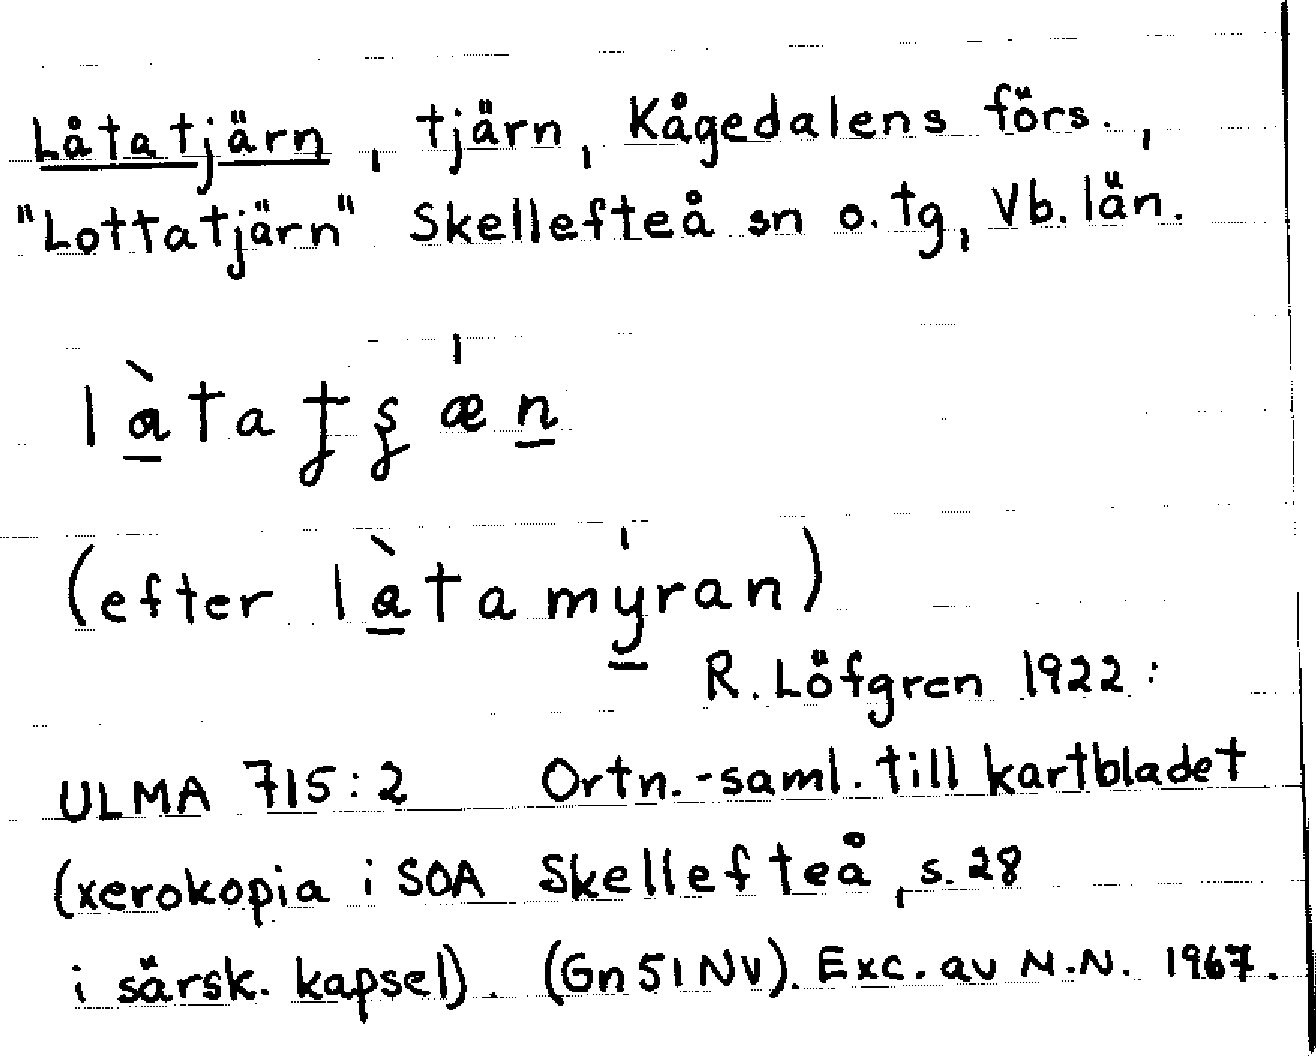 Låtatjärn, tjärn, Kågedalens förs.,
"Lottatjärn" Skellefteå sn o. tg, Vb. län.
là̱taƫʂæ̍ṉ
(efter là̱tamy̱̍ran)
R. Löfgren 1922:
ULMA 715:2 Ortn.-saml. till kartbladet
(xerokopia i SOA Skellefteå, s. 28
i särsk. kapsel). (Gn 51 NV). Exc. av N.N. 1967.